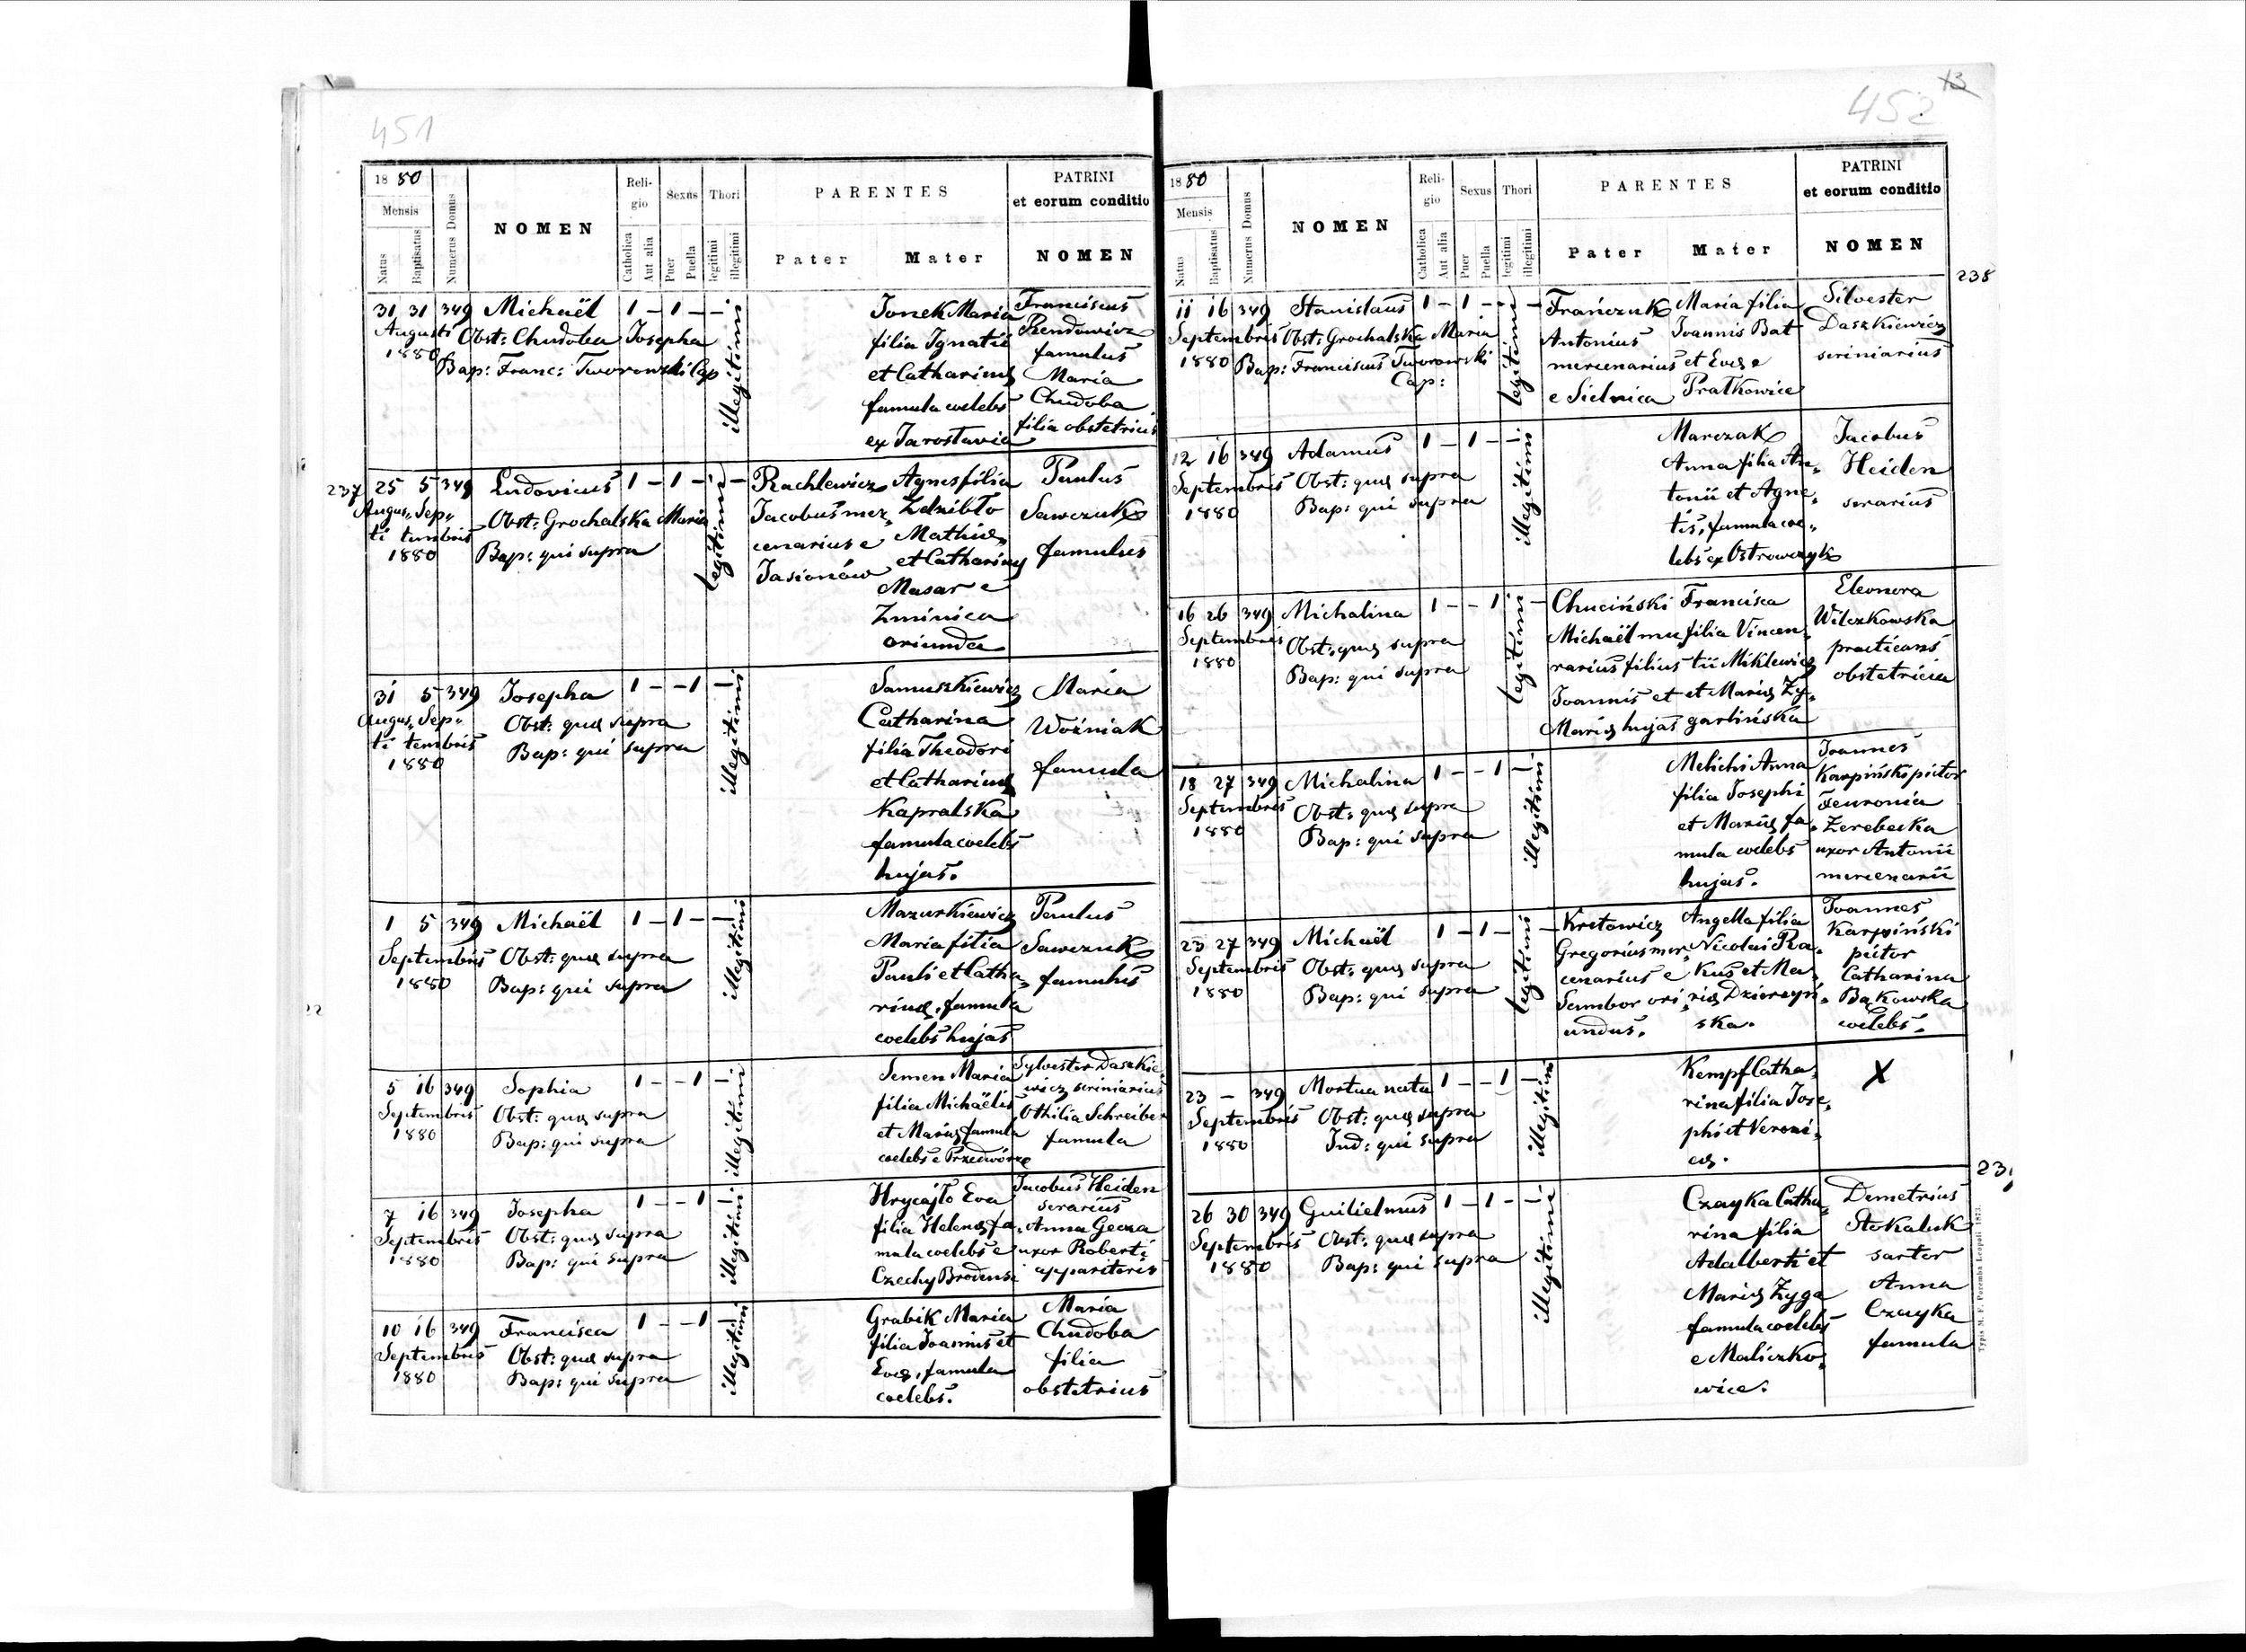 451
18 80
Mensis
Natus
Baptisatus
Numerus Domus
NOMEN
Religio
Catholica
Aut alia
Sexus
Puer
Puella
Thori
legitimi
illegitimi
PARENTES
Pater
Mater
PATRINI
et eorum conditio
NOMEN
31 31 349 Michaël 1 – 1 – –
Augusti Obst: Chudoba Josepha
1880
Bap: Franc: Tworowski Cap
illegitimi
Jonek Maria
filia Ignatii
et Catharinę
famula coelebs
ex Jaroslavia
Franciscus
famulus
Maria
Chudoba
filia obstetricis
237
25 5 349 Ludovicus 1 – 1 – 1 –
Augus„ Sep„ Obst: Grochalska Maria
ti tembris
1880 Bap: qui supra
legitimi
Rachlewicz
Jacobus mer„
cenarius e
Jasionów
Agnes filia
Zdzibło
Mathię
et Catharinę
Masar e
Zminica
oriunda
Paulus
Sawczuk
famulus
31 5 349 Josepha 1 – – 1 –
Augus„ Sep„ Obst: quę supra
ti tembris Bap: qui supra
1880
illegitimi
Samuszkiewicz
Catharina
filia Theodori
et Catharinę
Kapralska
famula coelebs
hujas.
Maria
Woźniak
famula
1 5 349 Michaël 1 – 1 – –
Septembris Obst: quę supra
1880 Bap: qui supra
illegitimi
Mazurkiewicz
Maria filia
Pauli et Catha„
rinę, famula
coelebs hujas
Paulus
Sawczuk
famulus
5 16 349 Sophia 1 – – 1 –
Septembris Obst: quę supra
1880 Bap: qui supra
illegitimi
Semen Maria
filia Michaëlis
et Marię famula
coelebs e Przedwórze
Sylvester Daszkie„
wicz scriniarius
Othilia Schreiber
famula
7 16 349 Josepha 1 – – 1 –
Septembris Obst: quę supra
1880 Bap: qui supra
illegitimi
Hrycajło Eva
filia Helenę fa„
mula coelebs e
Czechy Brodensi
Jacobus Heiden
serarius
Anna Gecza
uxor Roberti
apparitoris
10 16 349 Francisca 1 – – 1 –
Septembris Obst: quę supra
1880 Bap: qui supra
illegitimi
Grabik Maria
filia Joannis et
Evę, famula
coelebs.
Maria
Chudoba
filia
obstetricis
452
13
18 80
Mensis
Natus
Baptisatus
Numerus Domus
NOMEN
Religio
Catholica
Aut alia
Sexus
Puer
Puella
Thori
legitimi
illegitimi
PARENTES
Pater
Mater
PATRINI
et eorum conditio
NOMEN
238
11 16 349 Stanislaus 1 – 1 – 1 –
Septembris Obst: Grochalska Maria
1880 Bap: Franciscus Tworowski
Cap:
legitimi
Frańczuk
Antonius
mercenarius
e Sielnica
Maria filia
Joannis Bat
et Evę e
Pratkowice
Silvester
Daszkiewicz
scriniarius
12 16 349 Adamus 1 – 1 – –
Septembris Obst: quę supra
1880 Bap: qui supra
illegitimi
Marczak
Anna filia An„
tonii et Agne„
tis, famula coe„
lebs ex Ostrowczyk
Jacobus
Heiden
serarius
16 26 349 Michalina 1 – – 1 –
Septembris Obst: quę supra
1880 Bap: qui supra
legitimi
Chuciński
Michaël mu„
rarius filius
Joannis et
Marię hujas
Francisca
filia Vincen„
tii Miklewicz
et Marię Zy„
garlińska
Eleonora
Wilczkowska
practicans
obstetricia
18 27 349 Michalina 1 – – 1 –
Septembris Obst: quę supra
1880 Bap: qui supra
illegitimi
Melichi Anna
filia Josephi
et Marię fa„
mula coelebs
hujas.
Joannes
Karpiński pictor
Feuronia
Zerebecka
uxor Antonii
mercenarii
23 27 349 Michaël 1 – 1 – –
Septembris Obst: quę supra
1880 Bap: qui supra
legitimi
Kretowicz
Gregorius mer„
cenarius e
Sambor ori„
undus.
Angella filia
Nicolai Ra„
kus et Ma„
rię Dzierzyń„
ska.
Joannes
Karpiński
pictor
Catharina
Bąkowska
coelebs.
23 – 349 Mortua nata 1 – – 1 –
Septembris Obst: quę supra
1880 Ind: qui supra
illegitimi
Kempf Catha„
rina filia Jose„
phi et Veroni„
cę.
X
23
26 30 349 Guilielmus 1 – 1 – –
Septembris Obst: quę supra
1880 Bap: qui supra
illegitimi
Czayka Catha„
rina filia
Adalberti et
Marię Zyga
famula coelebs
e Maliczko„
wice.
Demetrius
Stokaluk
sartor
Anna
Czayka
famula
Typis M. F. Poremba Leopoli 1873.